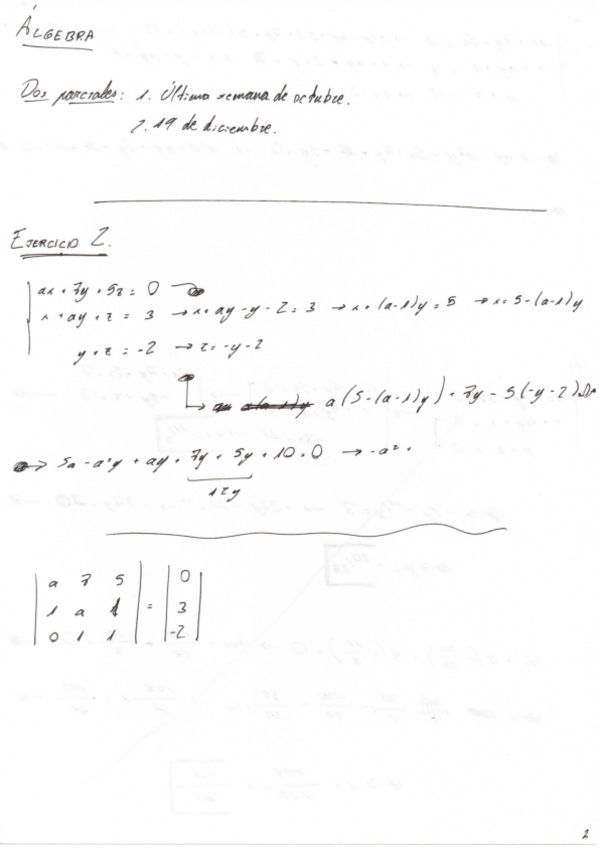 ÁLGEBRA
Dos parciales: 1. Última semana de octubre.
2. 19 de diciembre.
EJERCICIO 2.
ax + 7y + 5z = 0
x + ay + z = 3 → x + ay - y - 2 = 3 → x + (a-1)y = 5 → x = 5 - (a-1)y
y + z = -2 → z = -y - 2
a(5 - (a-1)y) + 7y - 5(-y-2)
→ 5a - a²y + ay + 7y + 5y + 10 = 0 → -a² +
12y
a 7 5 0
1 a 1 = 3
0 1 1 -2
2